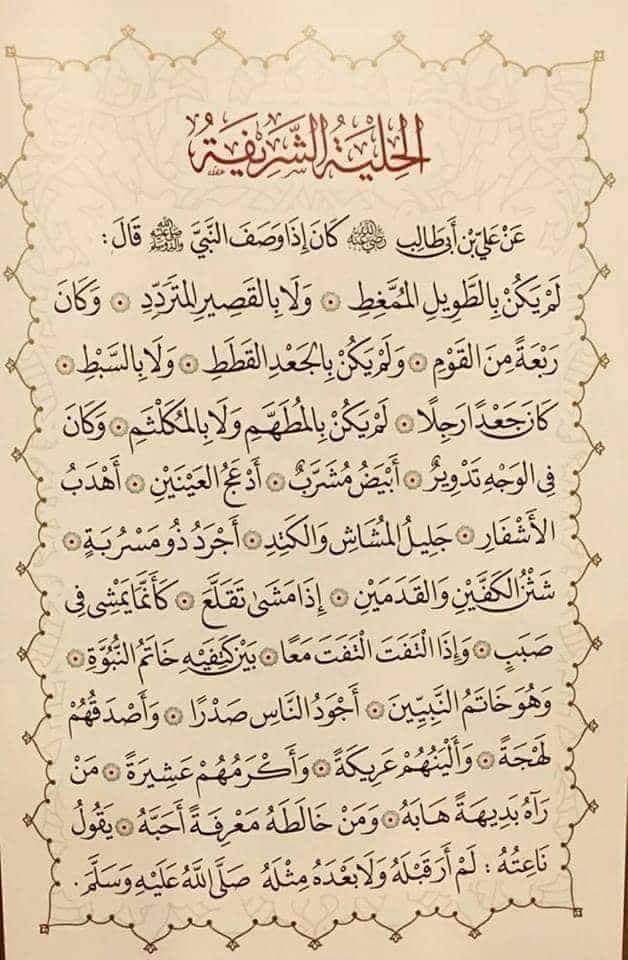 الحِلْيَةُ الشَّرِيفَةُ
عَنْ عَلِيِّ بْنِ أَبِي طَالِبٍ رضي الله عنه كَانَ إِذَا وَصَفَ النَّبِيَّ ﷺ قَالَ :
لَمْ يَكُنْ بِالطَّوِيلِ الْمُمَّغِطِ ۞ وَلَا بِالْقَصِيرِ الْمُتَرَدِّدِ ۞ وَكَانَ
رَبْعَةً مِنَ الْقَوْمِ ۞ وَلَمْ يَكُنْ بِالْجَعْدِ الْقَطَطِ ۞ وَلَا بِالسَّبْطِ ۞
كَانَ جَعْدًا رَجِلًا ۞ لَمْ يَكُنْ بِالْمُطَهَّمِ وَلَا بِالْمُكَلْثَمِ ۞ وَكَانَ
فِي الْوَجْهِ تَدْوِيرٌ ۞ أَبْيَضُ مُشَرَّبٌ ۞ أَدْعَجُ الْعَيْنَيْنِ ۞ أَهْدَبُ
الْأَشْفَارِ ۞ جَلِيلُ الْمُشَاشِ وَالْكَتِدِ ۞ أَجْرَدُ ذُو مَسْرُبَةٍ ۞
شَثْنُ الْكَفَّيْنِ وَالْقَدَمَيْنِ ۞ إِذَا مَشَىٰ تَقَلَّعَ ۞ كَأَنَّمَا يَمْشِي فِي
صَبَبٍ ۞ وَإِذَا الْتَفَتَ الْتَفَتَ مَعًا ۞ بَيْنَ كَتِفَيْهِ خَاتَمُ النُّبُوَّةِ ۞
وَهُوَ خَاتَمُ النَّبِيِّينَ ۞ أَجْوَدُ النَّاسِ صَدْرًا ۞ وَأَصْدَقُهُمْ
لَهْجَةً ۞ وَأَلْيَنُهُمْ عَرِيكَةً ۞ وَأَكْرَمُهُمْ عَشِيرَةً ۞ مَنْ
رَآهُ بَدِيهَةً هَابَهُ ۞ وَمَنْ خَالَطَهُ مَعْرِفَةً أَحَبَّهُ ۞ يَقُولُ
نَاعِتُهُ : لَمْ أَرَ قَبْلَهُ وَلَا بَعْدَهُ مِثْلَهُ صَلَّى اللَّهُ عَلَيْهِ وَسَلَّمَ .